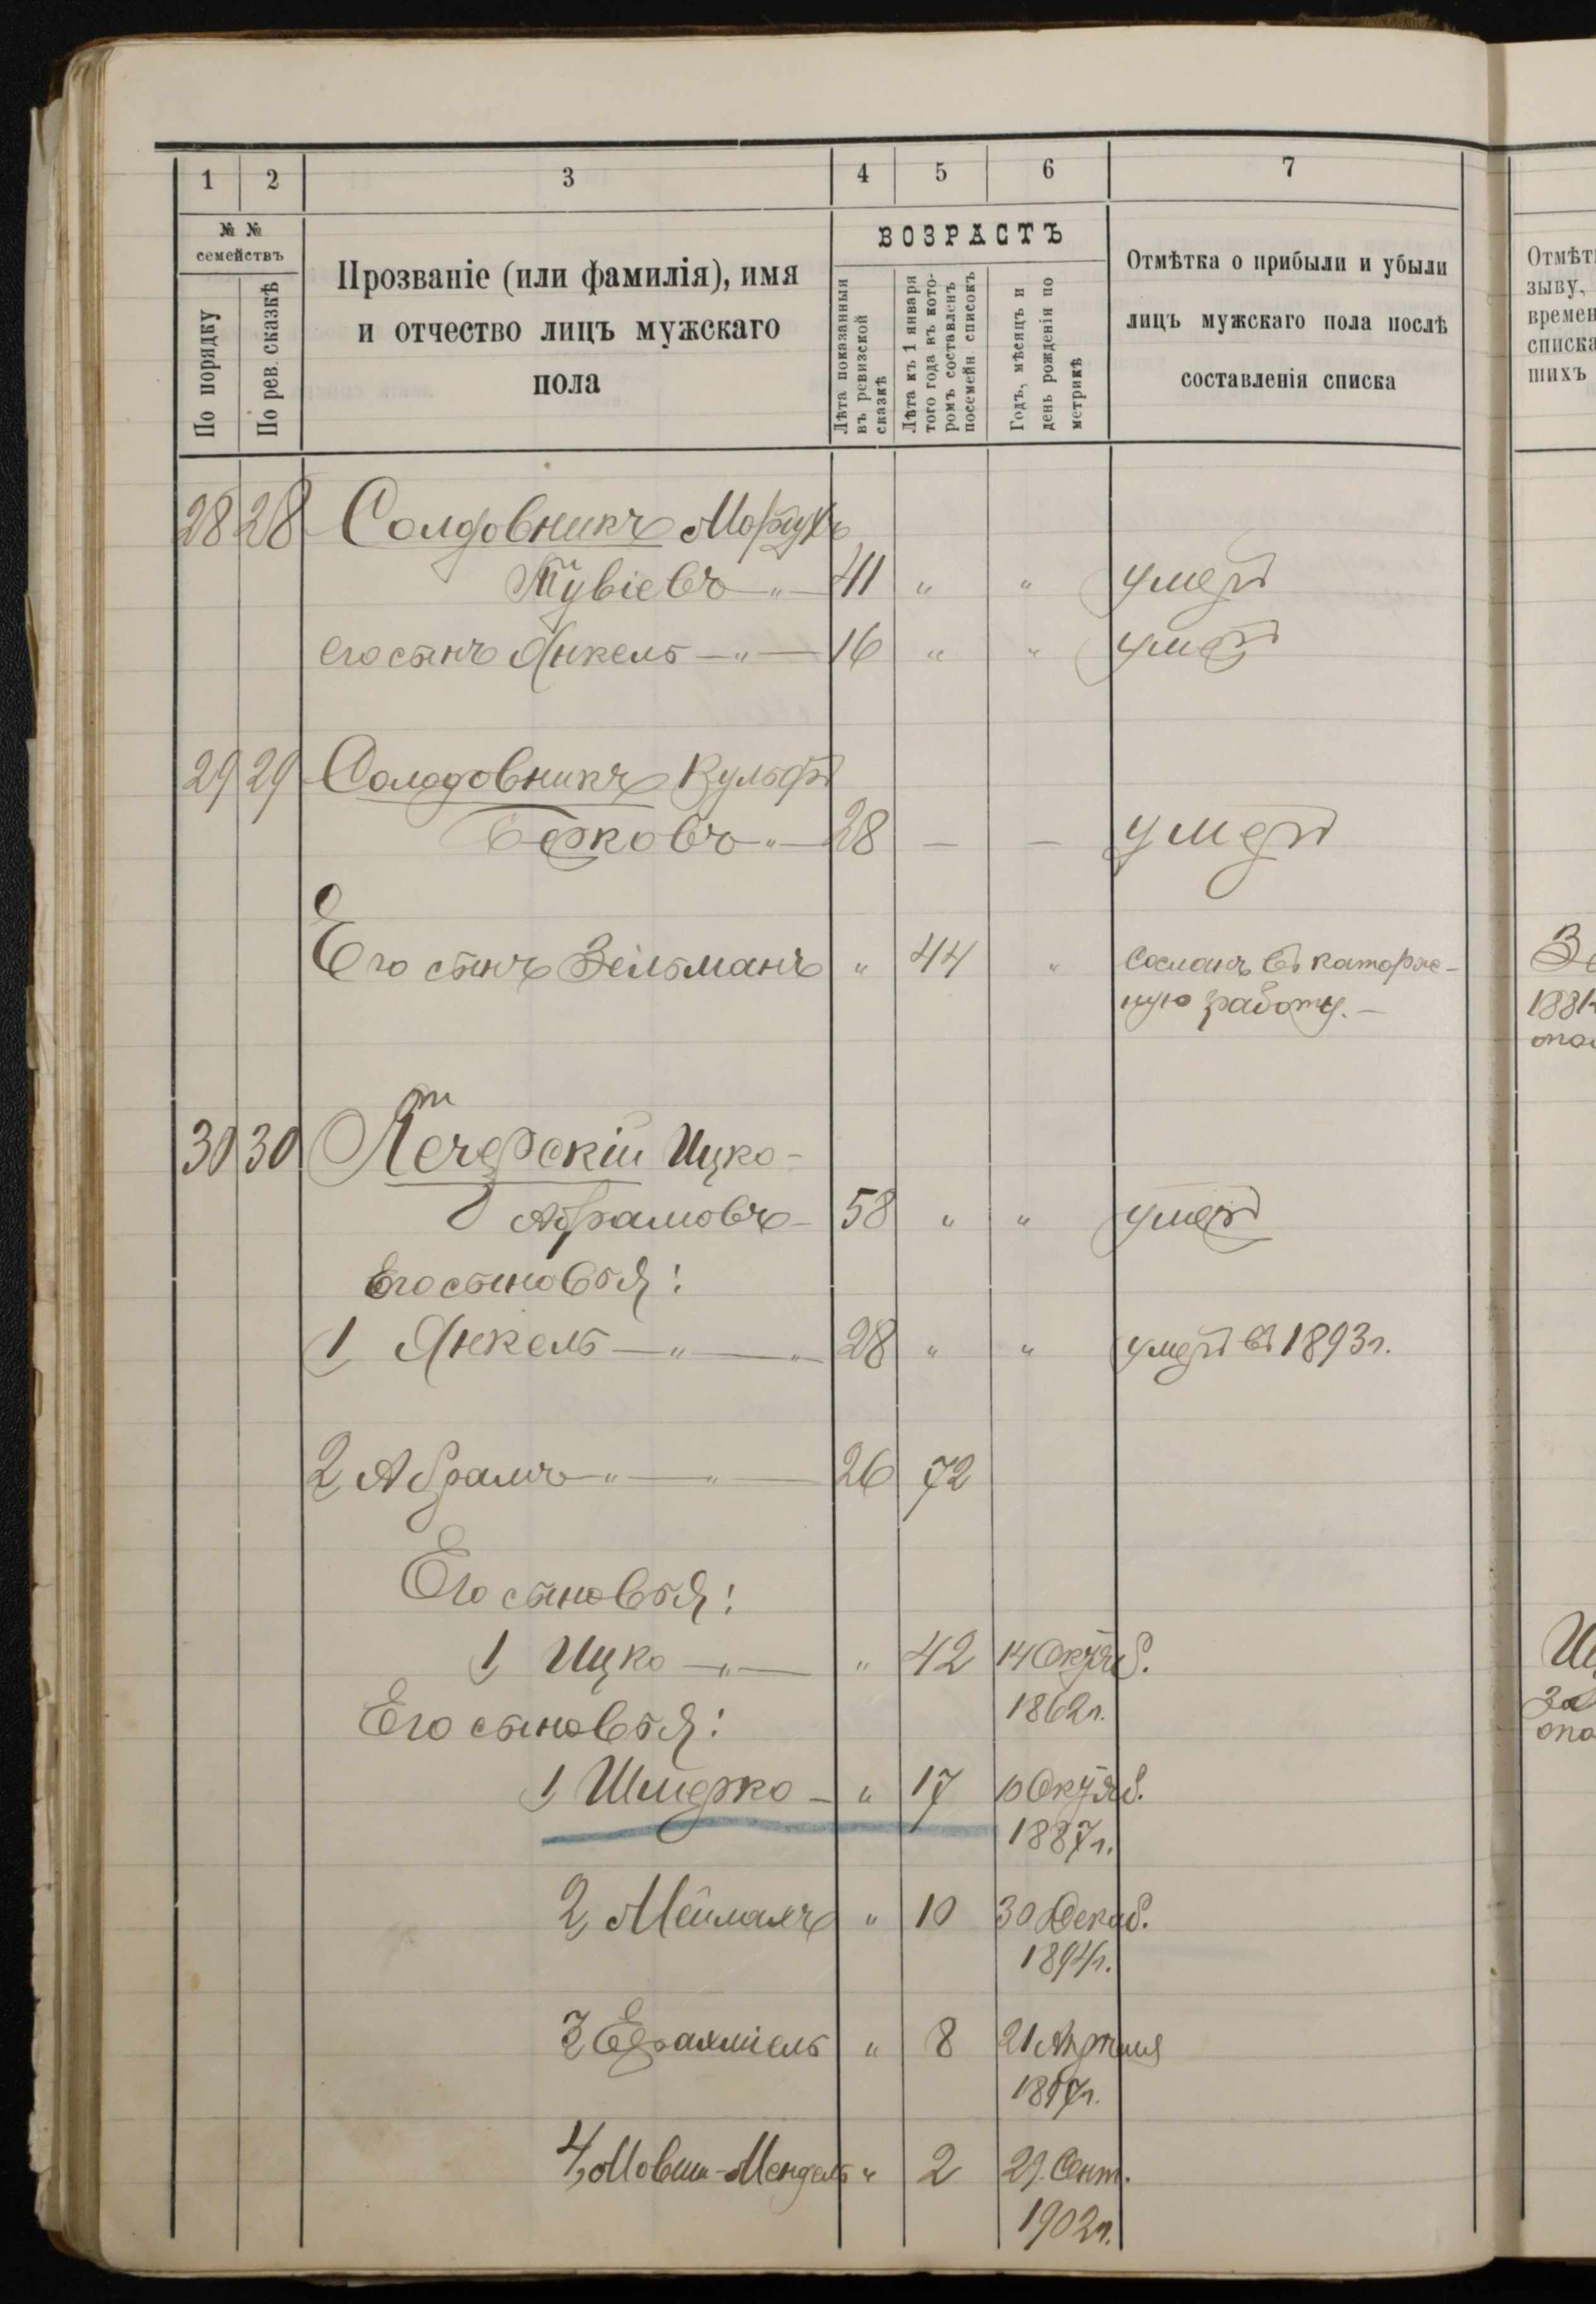 1 2 3 4 5 6 7
№ №
семействъ
По порядку
По рев. сказкѣ
Прозваніе (или фамилія), имя
и отчество лицъ мужскаго
пола
ВОЗРАСТЪ
Лѣта показанныя
въ ревизской
сказкѣ
Лѣта къ 1 января
того года въ кото-
ромъ составленъ
посемейн. списокъ
Годъ, мѣсяцъ и
день рожденія по
метрикѣ
Отмѣтка о прибыли и убыли
лицъ мужскаго пола послѣ
составленія списка
Отмѣт
зыву,
времен
списка
шихъ
28 28 Солдовникъ Мордухъ
Тувіевъ „ 41 „ „ умеръ
его сынъ Янкель „ 16 „ „ умеръ
29 29 Солодовникъ Вульфъ
Берковъ „ 28 — — умеръ
Его сынъ Зельманъ „ 44 „ Сосланъ въ каторж-
ную работу. —
1881
30 30 Печерскій Ицко-
Абрамовъ 58 „ „ умеръ
Его сыновья:
1 Янкель „ „ 28 „ „ умеръ въ 1893 г.
2 Абрамъ „ „ 26 72
Его сыновья:
1, Ицко „ „ 42 14 Октяб.
1862 г.
Его сыновья:
1, Шмерко „ 17 10 Октяб.
1887 г.
2, Меймахъ „ 10 30 Декаб.
1894 г.
3, Ерахміель „ 8 21 Апреля
1897 г.
4, Мовша-Мендель „ 2 29. Сент.
1902 г.